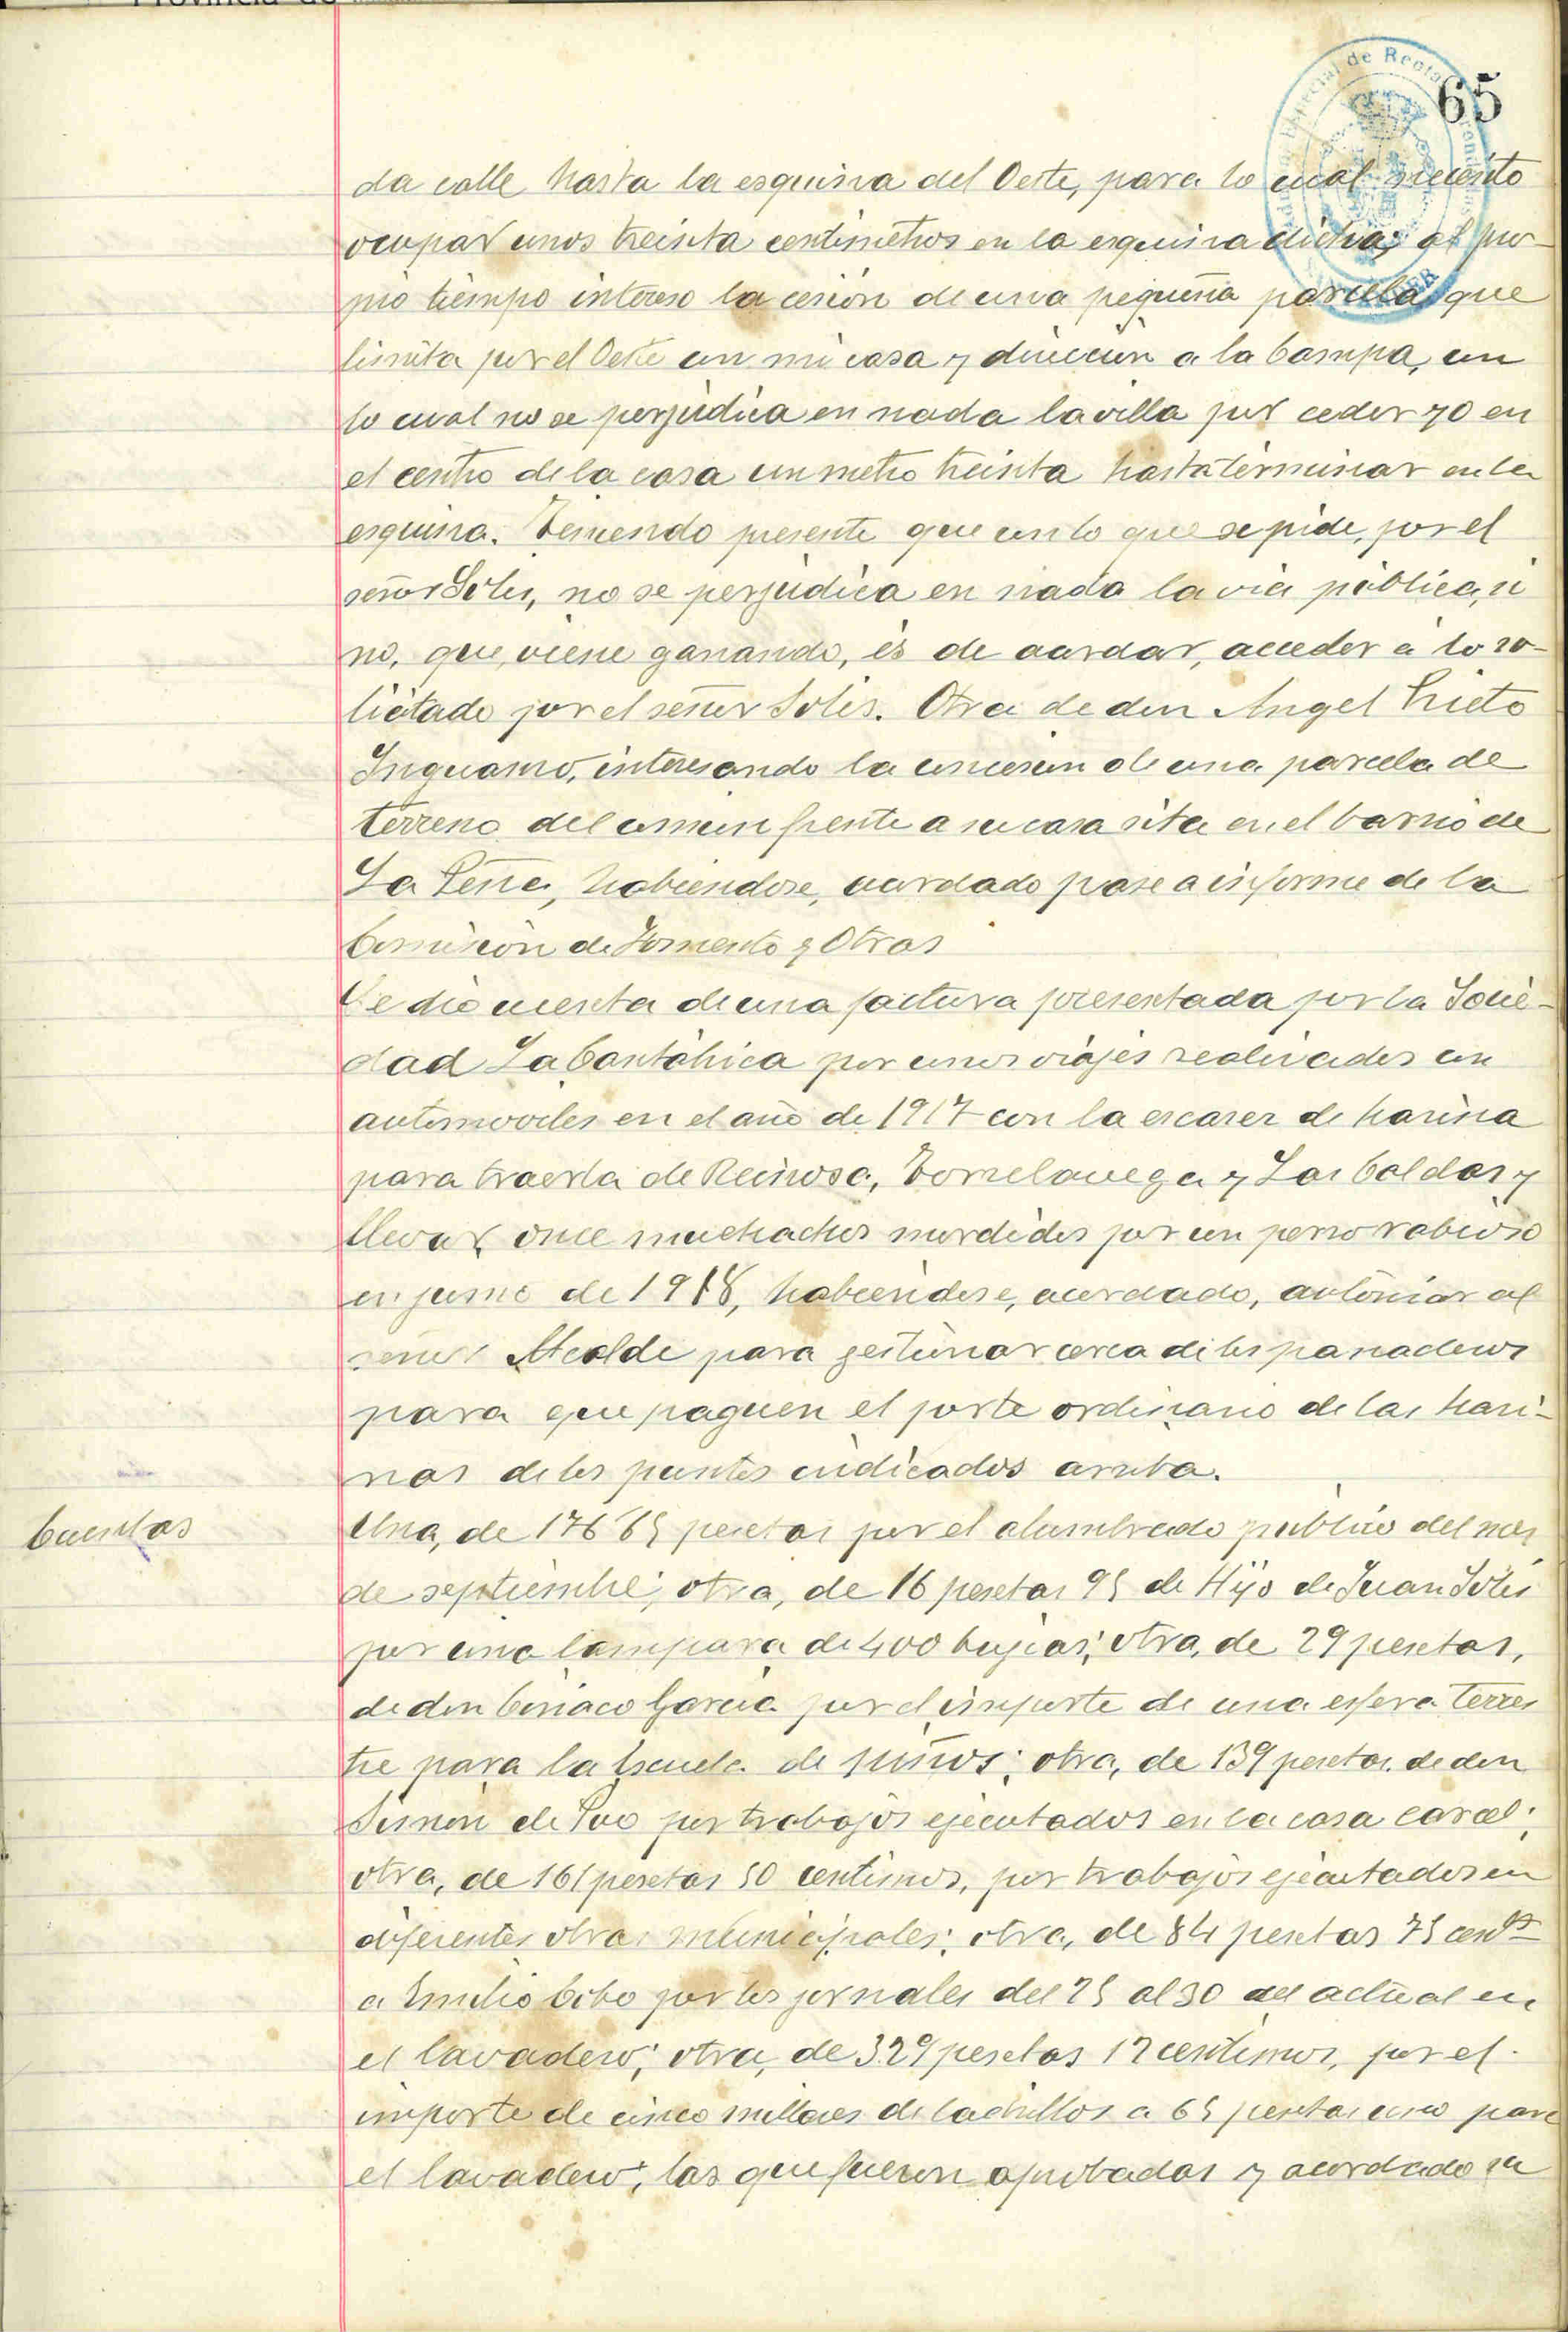 65
da calle hasta la esquina del Oeste, para lo cual necesito
ocupar unos treinta centimetros en la esquina dicha; al pro-
pio tiempo intereso la cesión de una pequeña parcela que
limita por el Oeste con mi casa y dirección a la Campa, con
lo cual no se perjudica en nada la villa por ceder yo en
el centro de la casa un metro treinta hasta terminar en la
esquina. Teniendo presente que con lo que se pide, por el
señor Solis, no se perjudica en nada la via pública, si
no, que, viene ganando, és de acordar, acceder a lo so-
licitado por el señor Solis. Otra de don Angel Prieto
interesando la concesión de una parcela de
terreno del comun frente a su casa sita en el barrio de
La Peña, habiendose, acordado pase a informe de la
Comisión de Fomento y Obras
Se dio cuenta de una factura presentada por la Socie-
dad La Cantábrica por unos viajes realizados con
automoviles en el año de 1917 con la escasez de harina
para traerla de Reinosa, Torrelavega y Las Caldas y
llevar once muchachos mordidos por un perro rabioso
en junio de 1918, habiendose, acordado, autorizar al
señor Alcalde para gestionar cerca de los panaderos
para que paguen el porte ordinario de las hari-
nas de los puntos indicados arriba.
Cuentas
Una, de 176 65 pesetas por el alumbrado público del mes
de septiembre; otra, de 16 pesetas 95 de Hijo de Juan Solis
por una lampara de 400 bujias; otra, de 29 pesetas,
de don Ciriaco Garcia por el importe de una esfera terres
tre para la Escuela de niños; otra, de 139 pesetas de don
Simón de Poo por trabajos ejecutados en la casa carcel;
otra, de 161 pesetas 50 centimos, por trabajos ejecutados en
diferentes obras municipales; otra, de 84 pesetas 75 cents
a Emilio Cobo por los jornales del 25 al 30 del actual en
el lavadero; otra, de 329 pesetas 17 centimos, por el
importe de cinco millares de ladrillos a 65 pesetas uno para
el lavadero; las que fueron aprobadas y acordado su